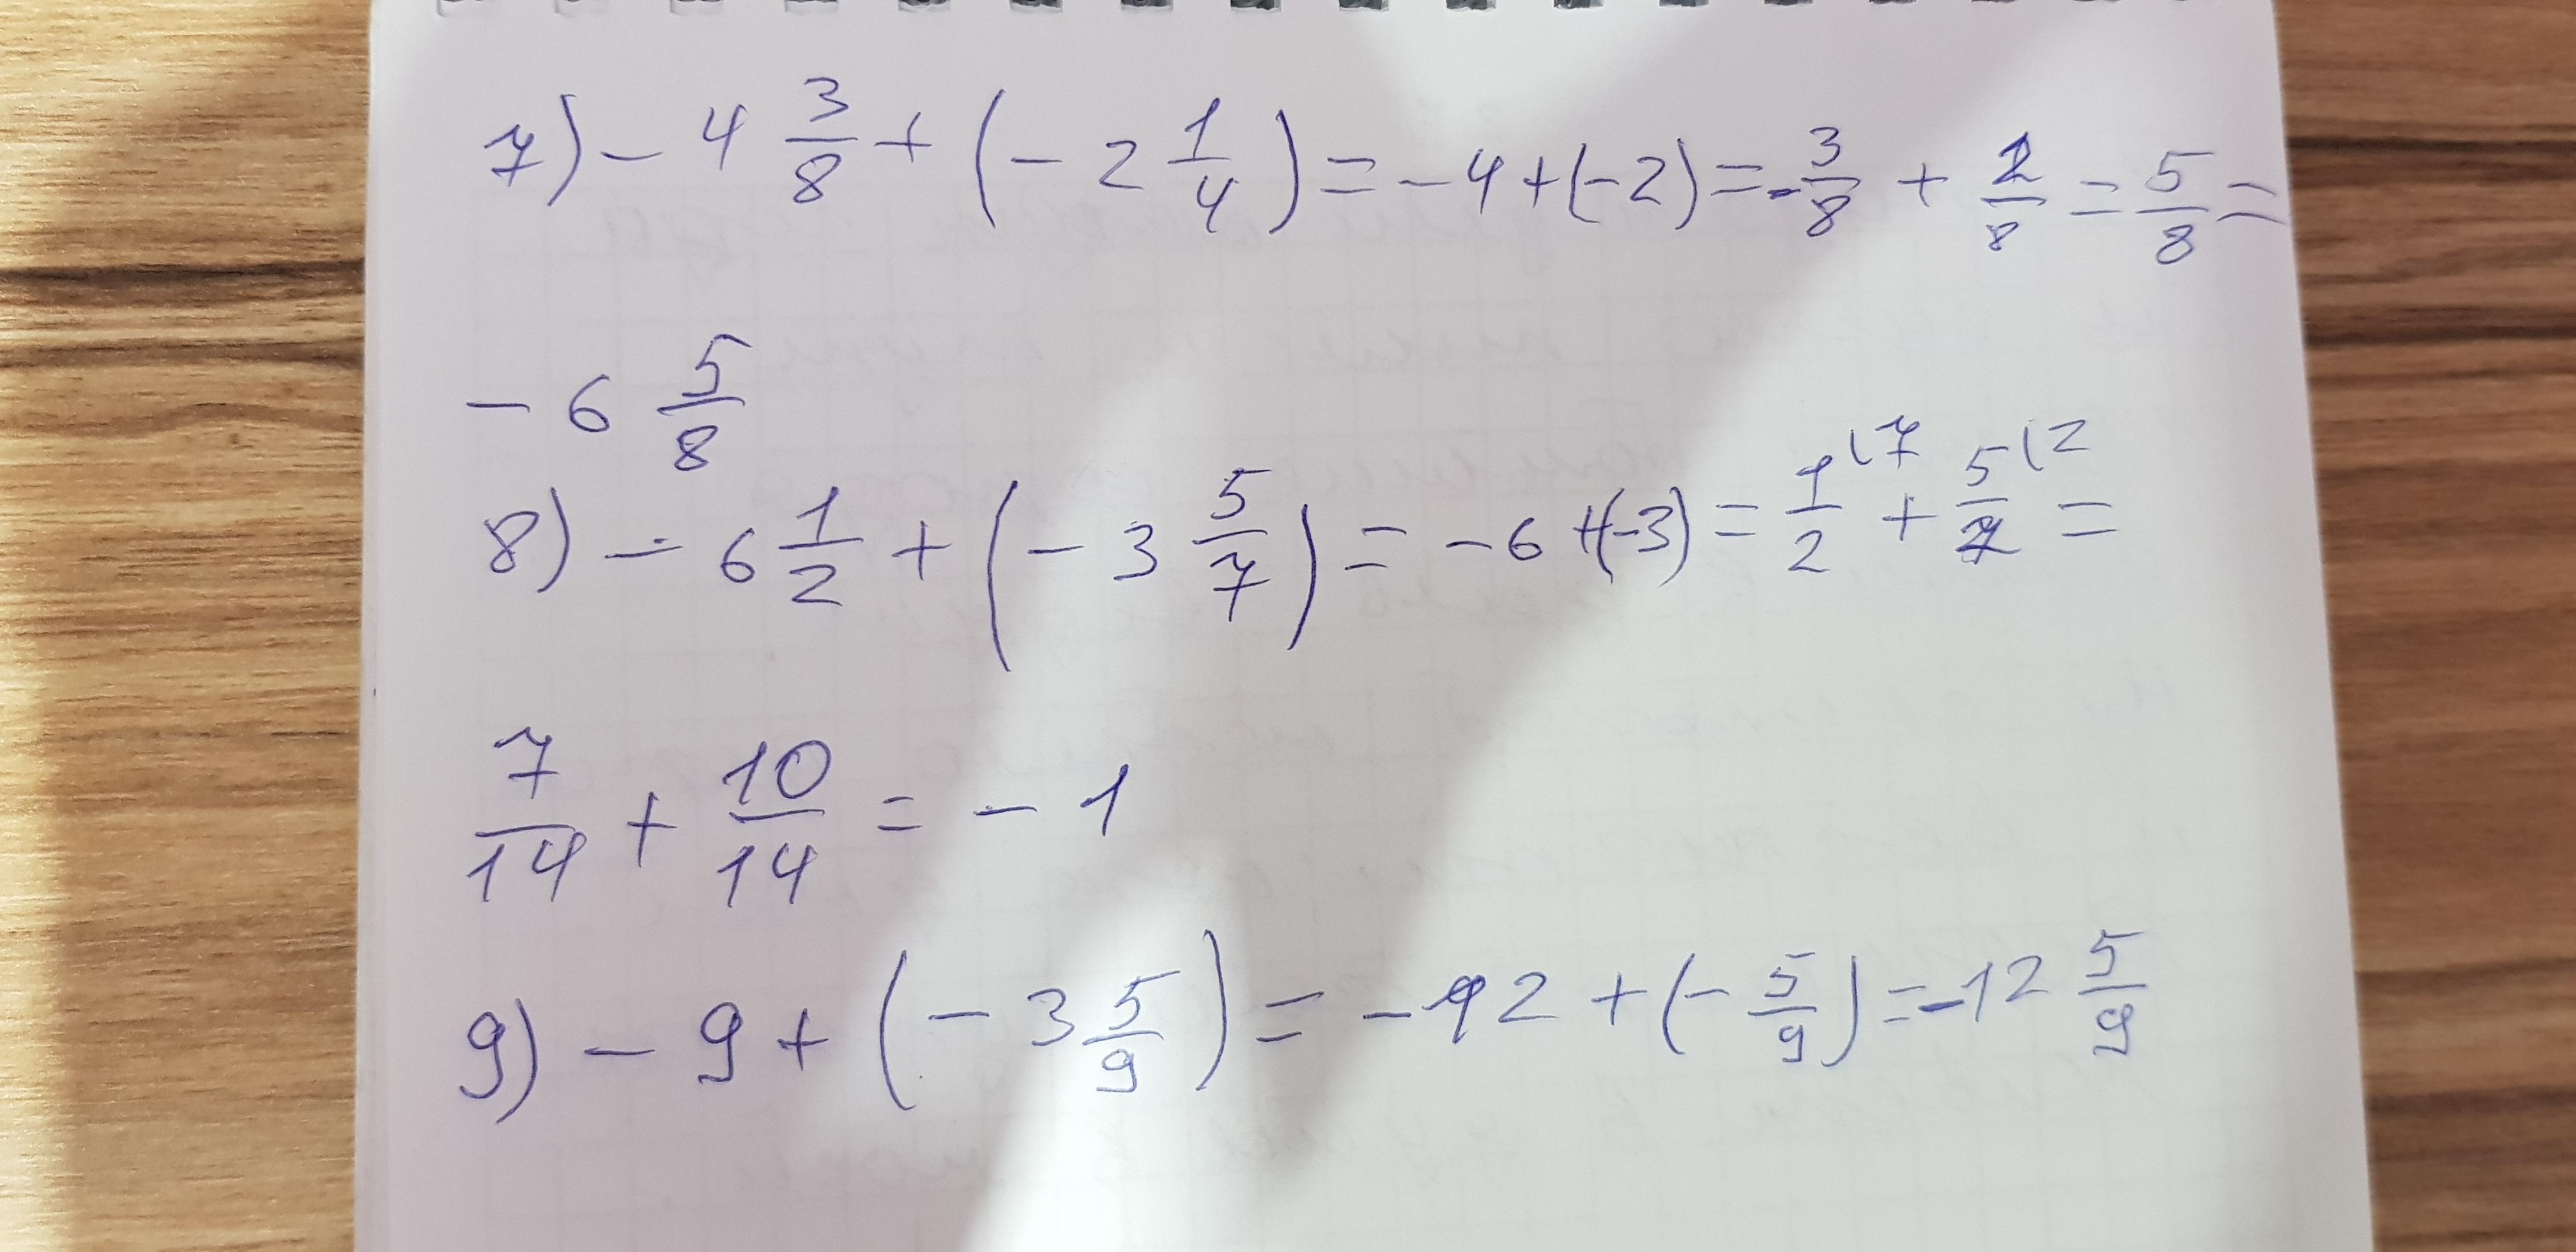 7) - 4 3/8 + (- 2 1/4) = - 4 + (- 2) = - 3/8 + 2/8 = 5/8 =
- 6 5/8
8) - 6 1/2 + (- 3 5/7) = - 6 + (-3) = 1/2 (7 + 5/7 (2 =
7/14 + 10/14 = - 1
9) - 9 + (- 3 5/9) = - 12 + (- 5/9) = - 12 5/9